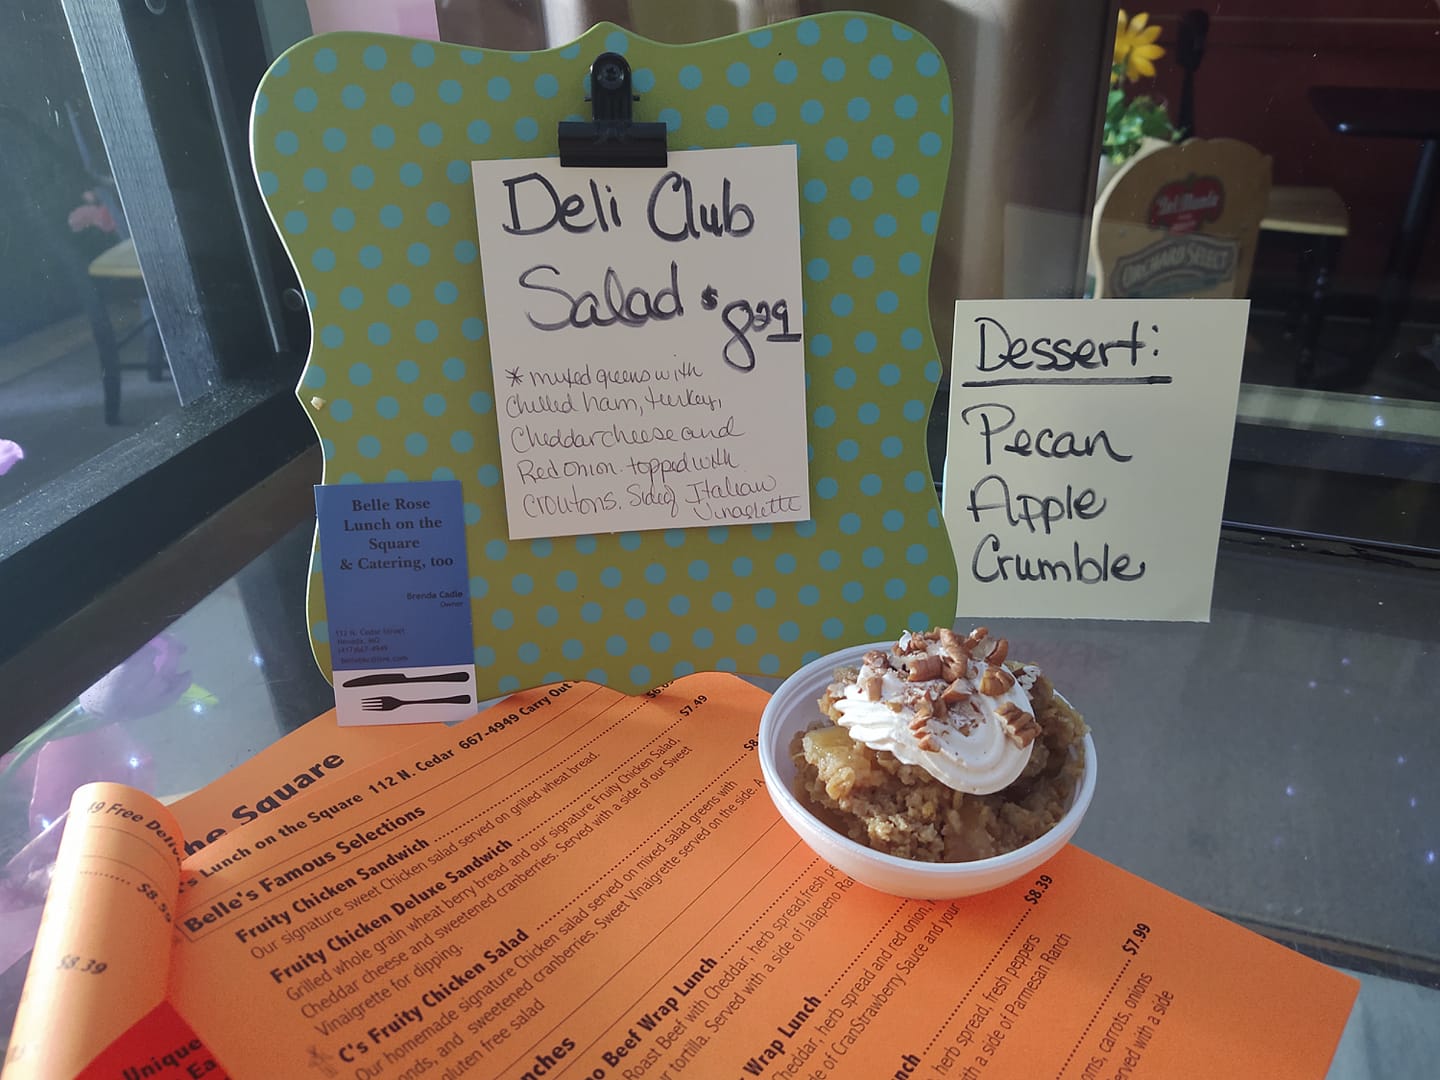 Deli Club
Salad $8.29
* mixed greens with
Chilled ham, turkey,
Cheddar cheese and
Red onion. topped with
Croutons. Side of Italian
Vinaigrette
Dessert:
Pecan
Apple
Crumble
Del Monte
ORCHARD SELECT
Belle Rose
Lunch on the
Square
& Catering, too
Brenda Cadle
Owner
112 N. Cedar Street
Nevada, MO
(417)667-4949
he Square
's Lunch on the Square 112 N. Cedar 667-4949 Carry Out
Belle's Famous Selections
Fruity Chicken Sandwich
Our signature sweet Chicken salad served on grilled wheat bread.
Fruity Chicken Deluxe Sandwich $7.49
Grilled whole grain wheat berry bread and our signature Fruity Chicken Salad,
Cheddar cheese and sweetened cranberries. Served with a side of our Sweet
Vinaigrette for dipping.
C's Fruity Chicken Salad $8.
Our homemade signature Chicken salad served on mixed salad greens with
onds, and sweetened cranberries. Sweet Vinaigrette served on the side. A
gluten free salad
nches
o Beef Wrap Lunch
Roast Beef with Cheddar, herb spread, fresh pe
r tortilla. Served with a side of Jalapeno Ra
Wrap Lunch $8.39
heddar, herb spread and red onion,
of CranStrawberry Sauce and your
nch $7.99
herb spread, fresh peppers
th a side of Parmesan Ranch
ms, carrots, onions
erved with a side
Free Deliv
$8.39
Unique
Ea